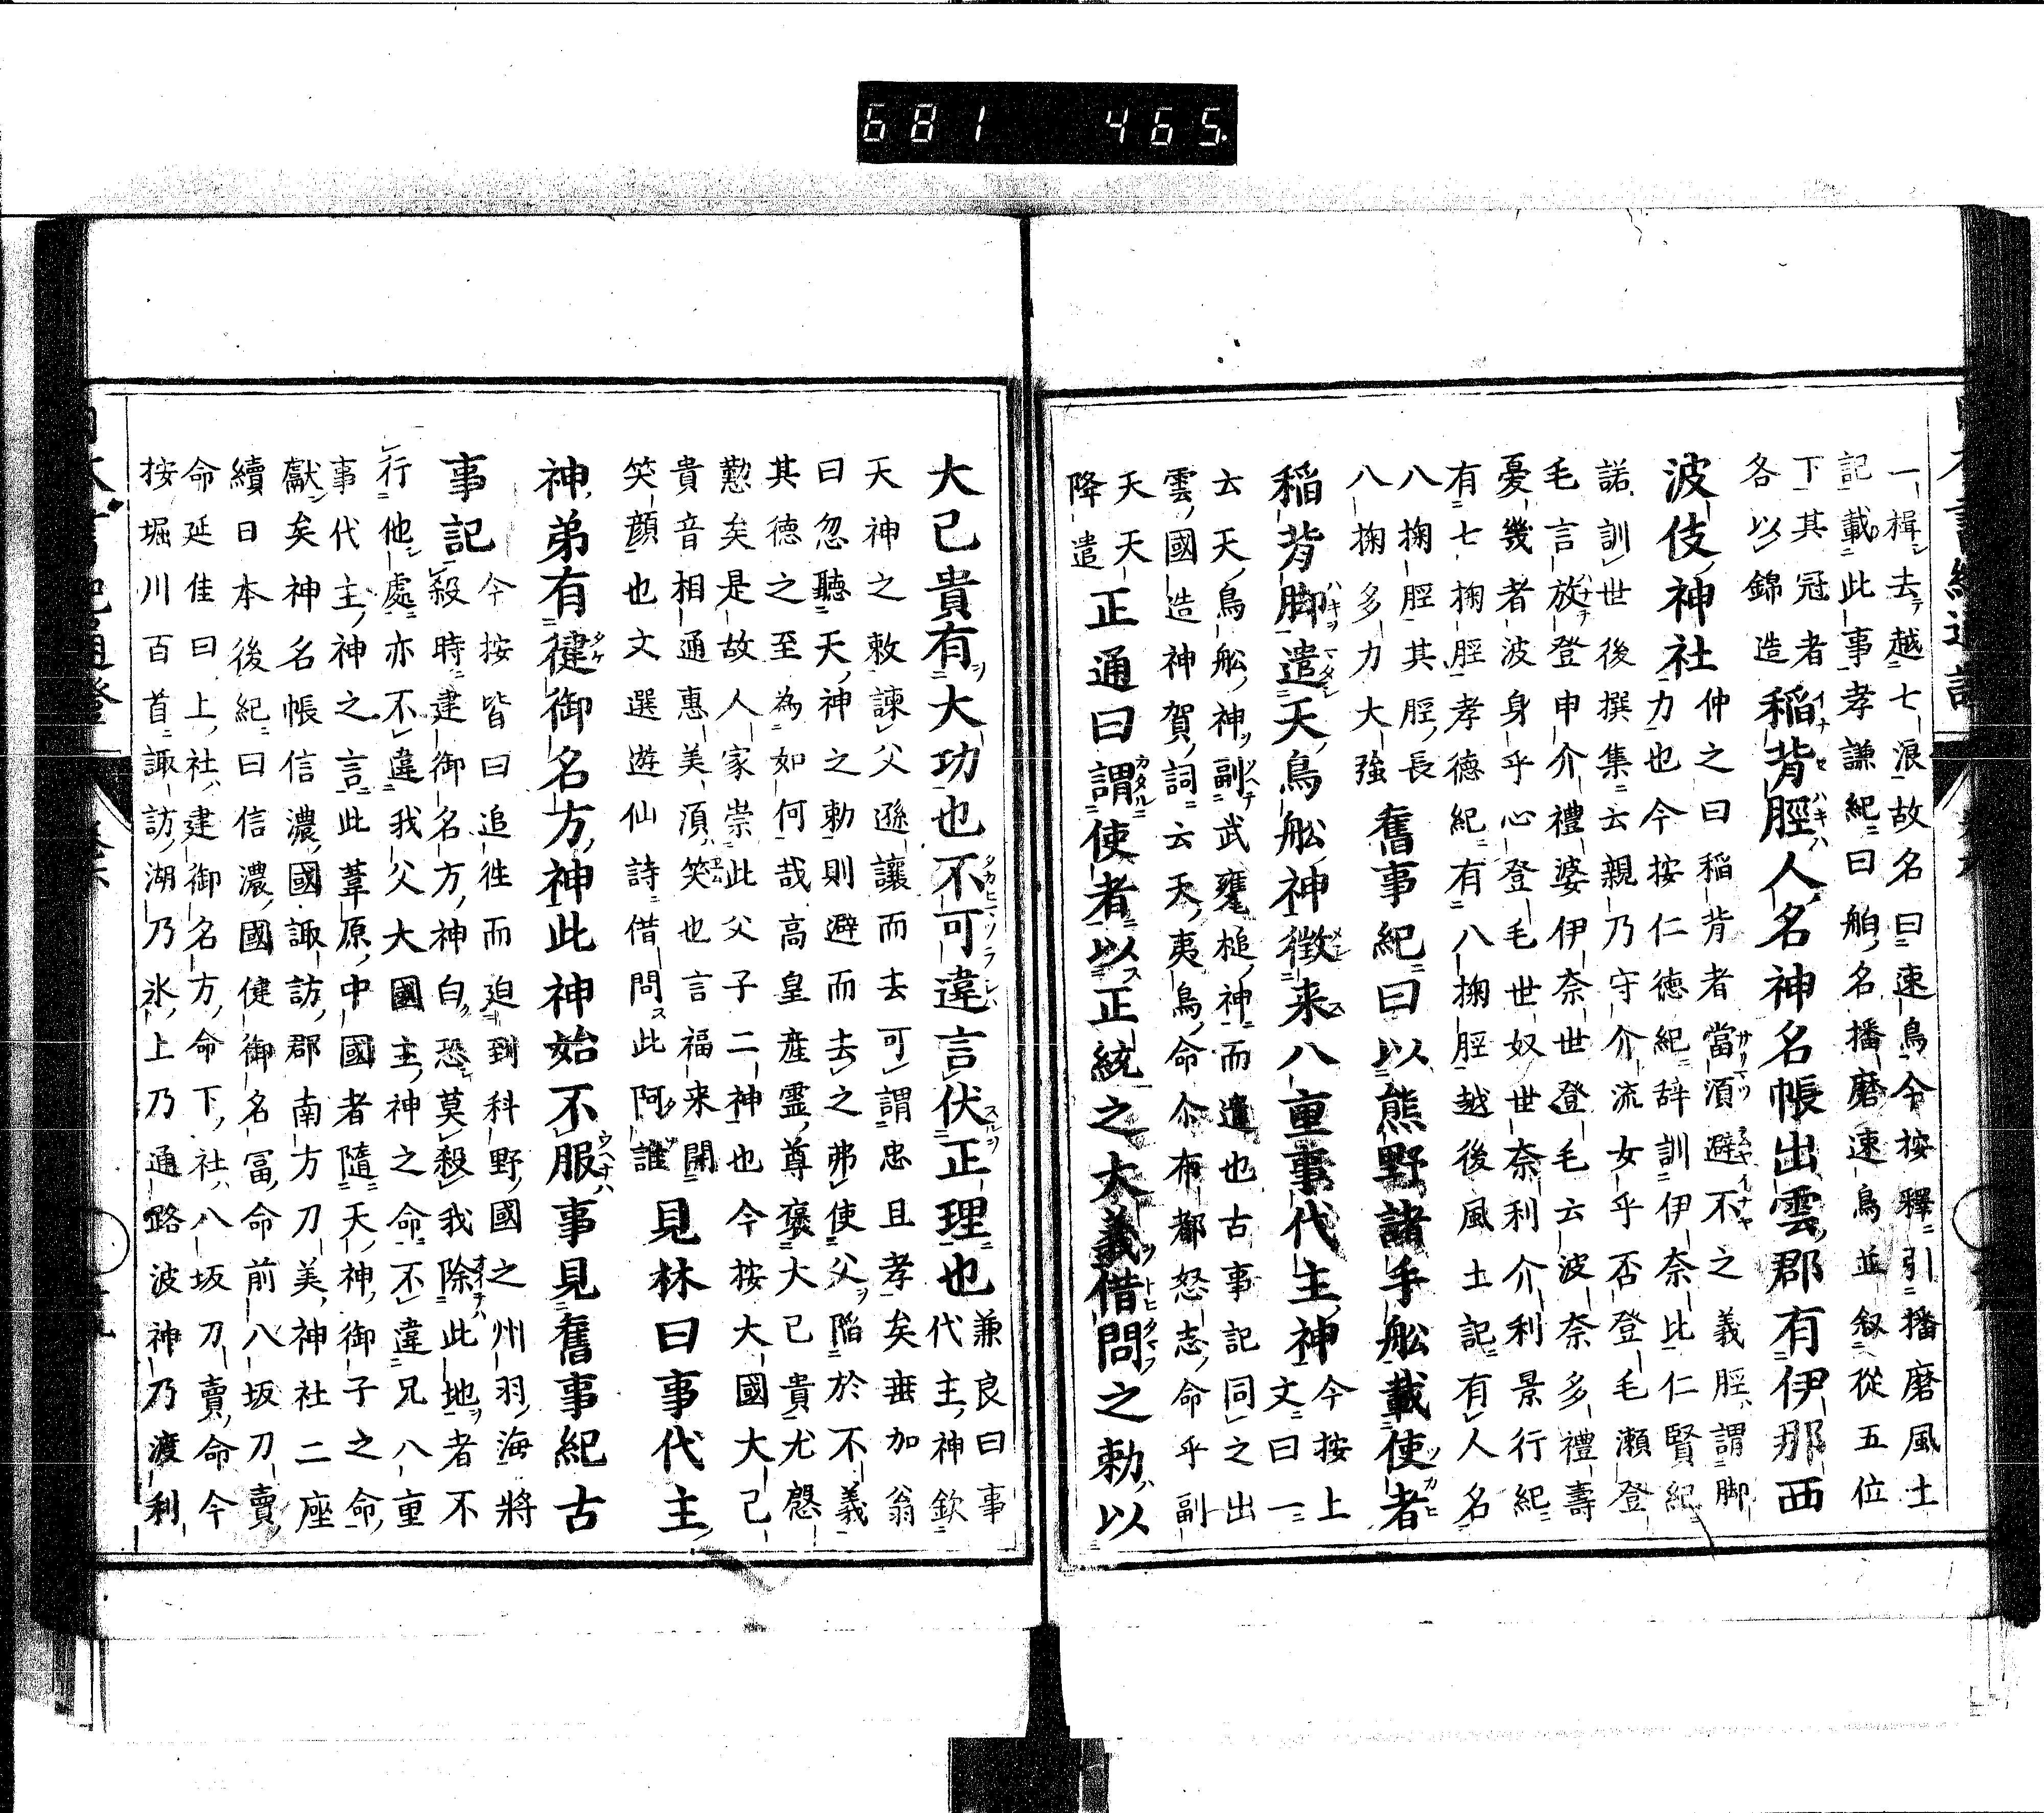 681 465
一楫去越七浪故名曰速鳥今按釋引播磨風土
記載此事孝謙紀曰舶名播磨速鳥並叙從五位
下其冠者
各以錦造
稲背脛人名神名帳出雲郡有伊那西
波伎神社
仲之曰稲背者當須避不之義脛謂脚
力也今按仁徳紀辞訓伊奈比仁賢紀
諾訓世後撰集云親乃守介流女乎否登毛瀬登
毛言放登申介禮婆伊奈世登毛云波奈多禮壽
憂幾者波身乎心登毛世奴世奈利介利景行紀
有七掬脛孝徳紀有八掬脛越後風土記有人名
八掬脛其脛長
八掬多力大強
舊事紀曰以熊野諸手舩載使者
稲背脚遣天鳥舩神徴来八重事代主神
今按上
文曰一
云天鳥舩神副武甕槌神而遣也古事記同之出
雲國造神賀詞云天夷鳥命尒布都怒志命乎副
天天
降遣
正通曰謂使者以正統之大義借問之勅以
大己貴有大功也不可違言伏正理也
兼良曰事
代主神欽
天神之敕諫父遜讓而去可謂忠且孝矣無加翁
曰忽聽天神之勅則避而去之弗使父陥於不義
其徳之至為如何哉高皇産靈尊褒大己貴尤慇
懃矣是故人家崇此父子二神也今按大國大己
貴音相通惠美湏笑也言福来開
笑顔也文選遊仙詩借問此阿誰
見林曰事代主
神弟有健御名方神此神始不服事見舊事紀古
事記
今按皆曰追徃而迫到科野國之州羽海將
殺時建御名方神白恐莫殺我除此地者不
行他處亦不違我父大國主神之命不違兄八重
事代主神之言此葦原中國者隨天神御子之命
獻矣神名帳信濃國諏訪郡南方刀美神社二座
續日本後紀曰信濃國健御名冨命前八坂刀賣
命延佳曰上社建御名方命下社八坂刀賣命今
按堀川百首諏訪湖乃氷上乃通路波神乃渡利